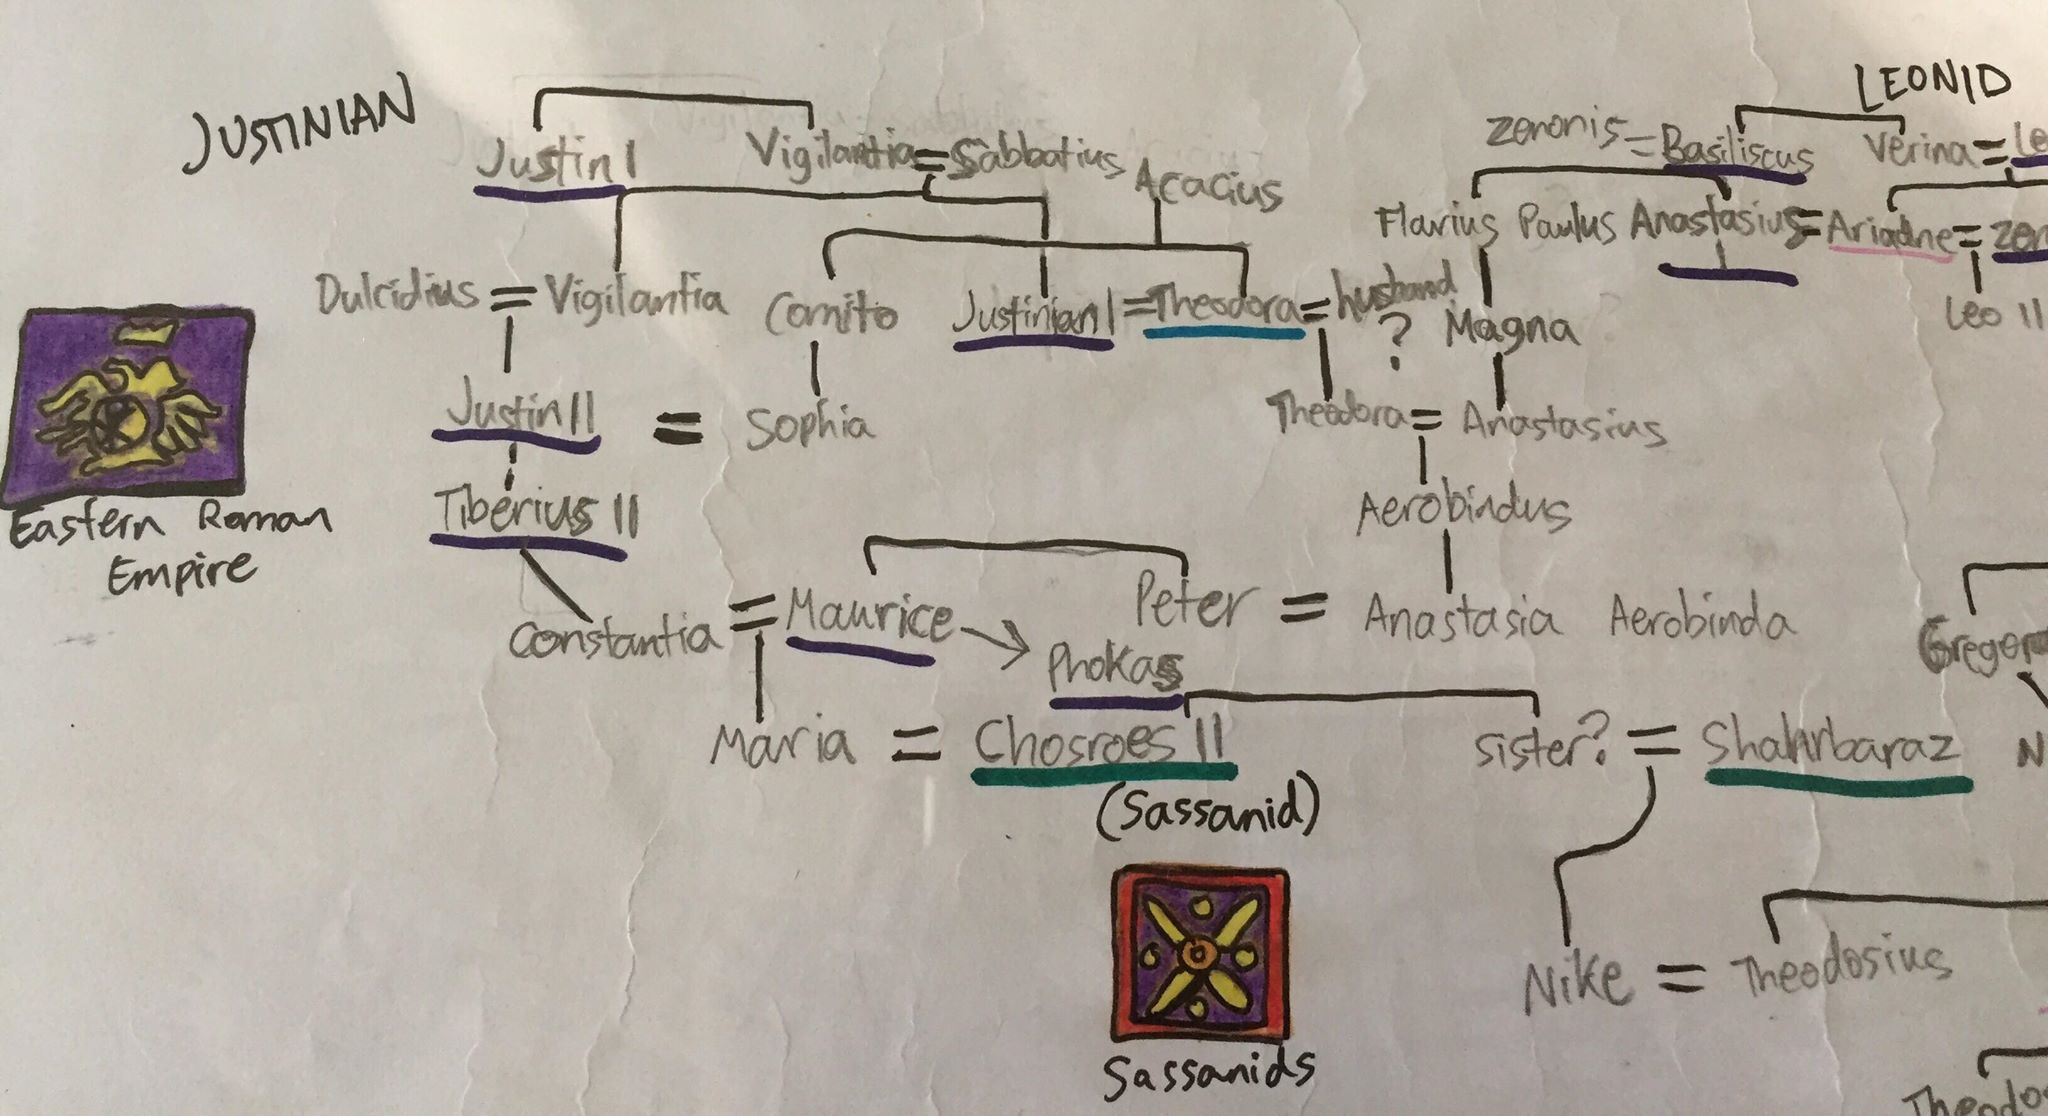 JUSTINIAN
LEONID
Justin I
Vigilantia = Sabbatius
Acacius
Zenonis = Basiliscus
Verina = Le
Flavius Paulus Anastasius = Ariadne = Zen
I
Leo II
Dulcidius = Vigilantia
Comito
Justinian I = Theodora = husband
?
Magna
Justin II = Sophia
Theodora = Anastasius
Tiberius II
Aerobindus
Eastern Roman
Empire
Constantia = Maurice → Phokas
Peter = Anastasia Aerobinda
Gregor
Maria = Chosroes II
(Sassanid)
sister? = Shahrbaraz
N
Nike = Theodosius
Sassanids
Theodos